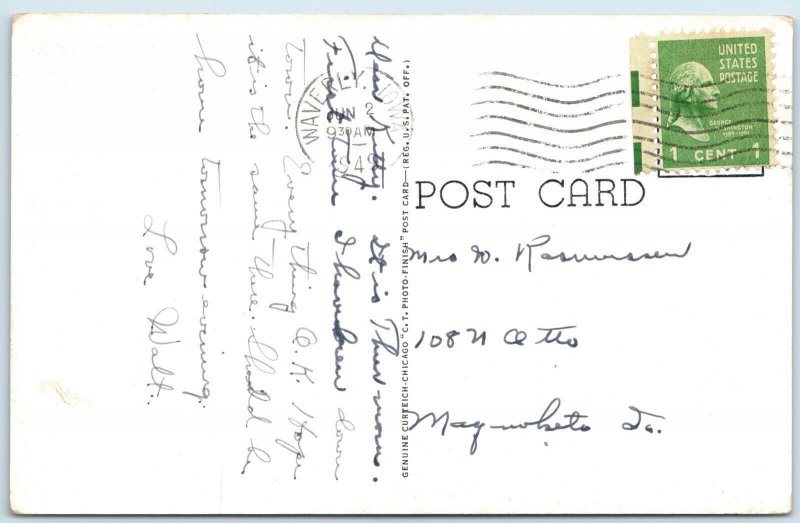 Dear Kitty. It is Thur morn.
First time I have been down
Town. Every thing O.K. Hope
it is the same there. Should be
home tomorrow evening.
Love Walt.
WAVERLY, IOWA
JUN 2
930 AM
1949
GENUINE CURTEICH-CHICAGO "C.T. PHOTO-FINISH" POST CARD—(REG. U.S. PAT. OFF.)
UNITED
STATES
POSTAGE
GEORGE
WASHINGTON
1 CENT 1
POST CARD
Mrs W. Rasmussen
108 N Otto
Maquoketa Ia.